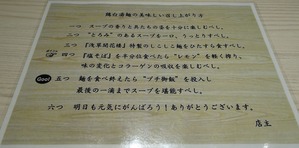 鶏白湯麺の美味しい召し上がり方
一つ スープの香りと具たちの姿を十分に楽しむべし。
二つ "とろみ"のあるスープを一口。うっとりすべし。
三つ 『浅草開花楼』特製のしこしこ麺をひたすら食すべし。
四つ 『塩そば』を半分位食べたら"レモン"を軽く搾り、
味の変化とコラーゲンの吸収を楽しむべし。
Goal 五つ 麺を食べ終えたら"プチ御飯"を投入し
最後の一滴までスープを堪能すべし。
六つ 明日も元気にがんばろう!ありがとうございます。
店主